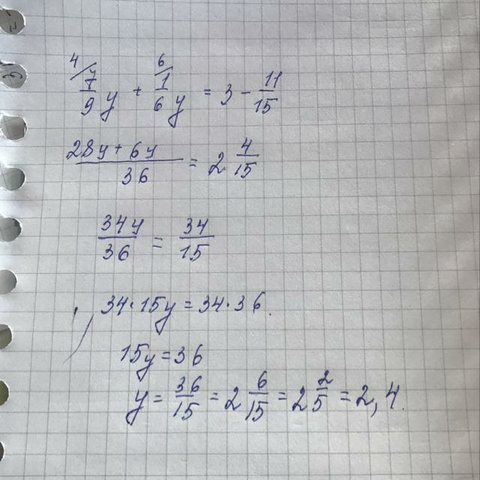 4/ 7/9 y + 6/ 1/6 y = 3 - 11/15
28y + 6y / 36 = 2 4/15
34y/36 = 34/15
34·15y = 34·36.
15y = 36
y = 36/15 = 2 6/15 = 2 2/5 = 2,4.